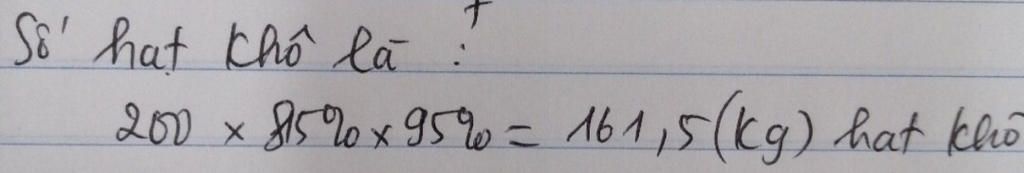 Số hạt khô là :
200 × 85% × 95% = 161,5 (kg) hạt khô